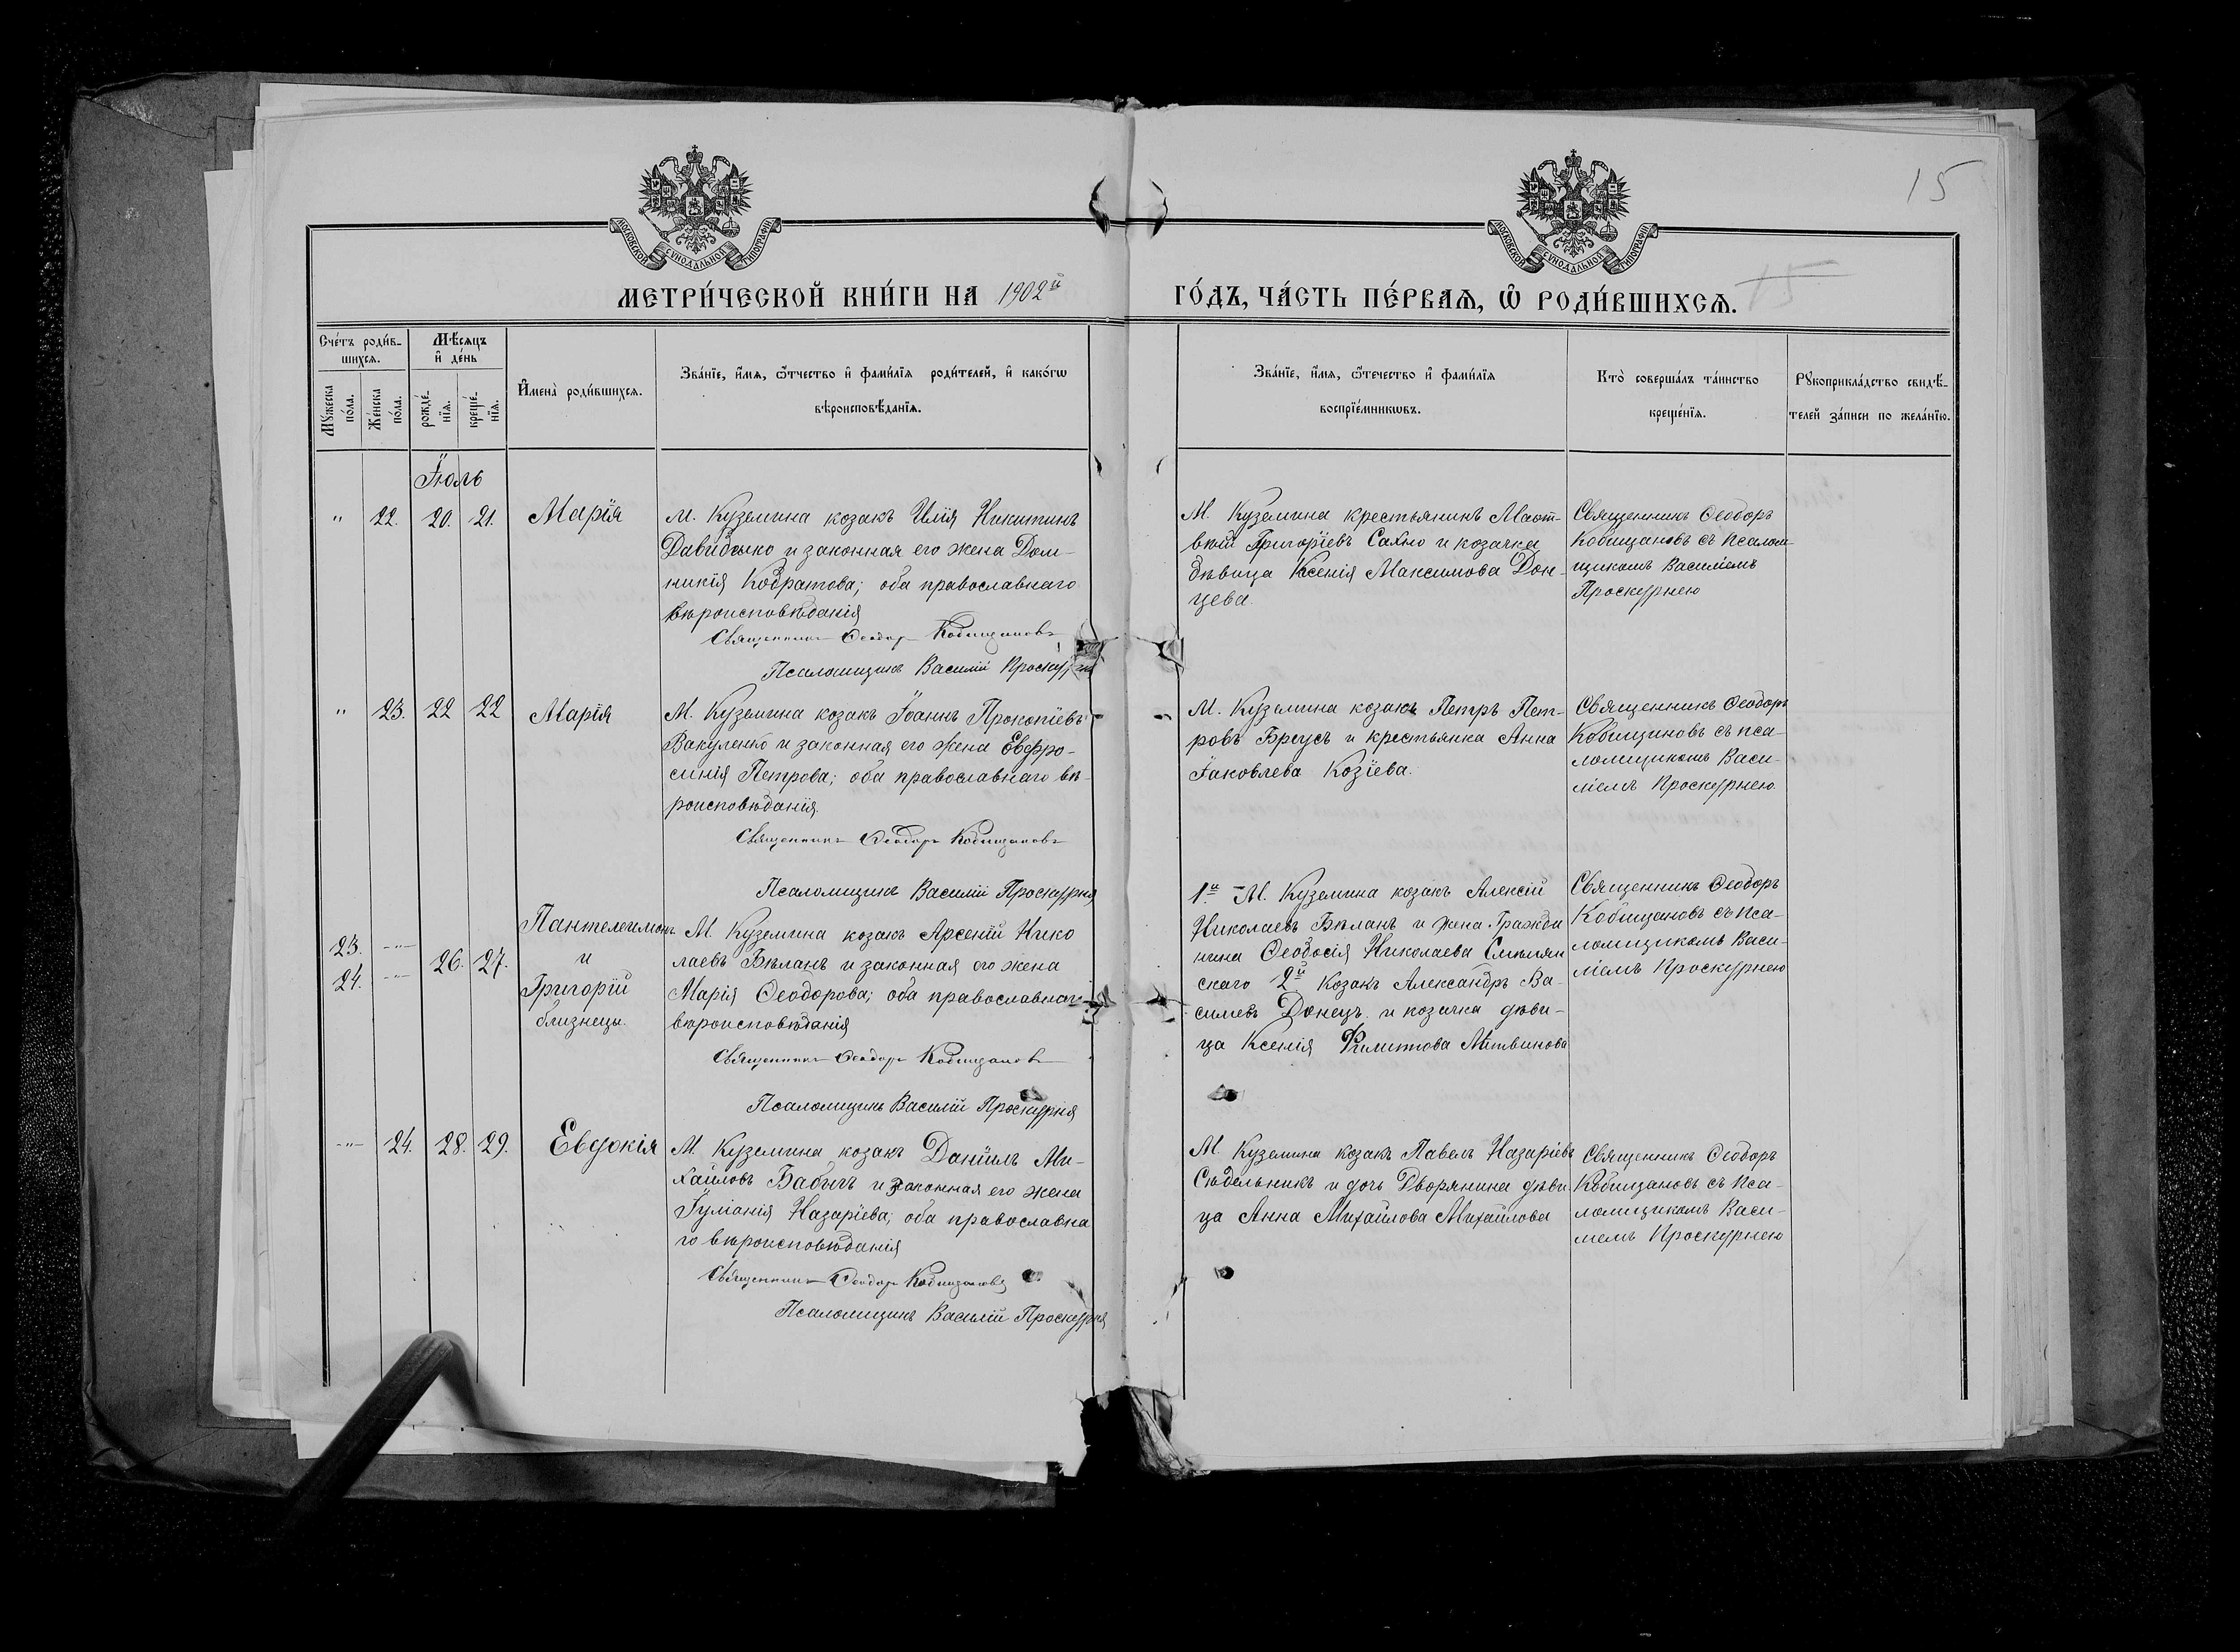 15
МОСКОВСКОЙ СѴНОДАЛЬНОЙ ТИПОГРАФІИ
МОСКОВСКОЙ СѴНОДАЛЬНОЙ ТИПОГРАФІИ
МЕТРИ́ЧЕСКОЙ КНИ́ГИ НА 1902й
ГО́ДЪ, ЧА́СТЬ ПЕ́РВАѦ, Ѡ҆ РОДИ́ВШИХСѦ.
15
Сче́тъ роди́в-
шихсѧ.
Мѣ́сѧцъ
и҆ де́нь
Мꙋжеска
по́ла.
Женска
по́ла.
рожде́-
нїѧ.
креще́-
нїѧ.
И҆мена̀ роди́вшихсѧ.
Зва́нїе, и҆́мѧ, ѻ҆́тчество и҆ фами́лїѧ роди́телей, и҆ како́гѡ
вѣроисповѣ́данїѧ.
Зва́нїе, и҆́мѧ, ѻ҆́течество и҆ фами́лїѧ
воспрїе́мникѡвъ.
Кто̀ соверша́лъ та́инство
креще́нїѧ.
Рꙋкоприкла́дство свидѣ́-
телей за́писи по жела́нїю.
Іюль
" 22. 20. 21. Марія
М. Куземина козакъ Илія Никитинъ
Давидько и законная его жена Дом-
никія Кодратова; оба православнаго
вѣроисповѣданія
Священникъ Ѳеодоръ Кобищановъ
Псаломщикъ Василій Проскурня
М. Куземина крестьянинъ Мат-
вѣй Григоріевъ Сахно и козачка
дѣвица Ксенія Максимова Дон-
цева.
Священникъ Ѳеодоръ
Кобищановъ съ псалом-
щикомъ Василіемъ
Проскурнею
" 23. 22 22 Марія
М. Куземина козакъ Іоаннъ Прокопіевъ
Вакуленко и законная его жена Евфро-
синія Петрова; оба православнаго вѣ-
роисповѣданія.
Священникъ Ѳеодоръ Кобищановъ
Псаломщикъ Василій Проскурня
М. Куземина козакъ Петръ Пет-
ровъ Бреусъ и крестьянка Анна
Іаковлева Козіева.
Священникъ Ѳеодоръ
Кобищановъ съ пса-
ломщикомъ Васи-
ліемъ Проскурнею.
23. -"-
24. -"-
26. 27.
Пантелеимонъ
и
Григорій
близнецы.
М. Куземина козакъ Арсеній Нико
лаевъ Бѣланъ и законная его жена
Марія Ѳеодорова; оба православнаго
вѣроисповѣданія
Священникъ Ѳеодоръ Кобищановъ
Псаломщикъ Василій Проскурня
1й М. Куземина козакъ Алексій
Николаевъ Бѣланъ и жена Гражда
нина Ѳеодосія Николаева
скаго 2й Козакъ Александръ Ва-
сильевъ Донецъ и козачка дѣви-
ца Ксенія Филиппова Литвинова
Священникъ Ѳеодоръ
Кобищановъ съ пса-
ломщикомъ Васи-
ліемъ Проскурнею
-"- 24. 28. 29. Евдокія
М. Куземина козакъ Даніилъ Ми-
хайловъ Бабичъ и законная его жена
Іуліанія Назаріева; оба православна
го вѣроисповѣданія
Священникъ Ѳеодоръ Кобищановъ
Псаломщикъ Василій Проскурня
М. Куземина козакъ Павелъ Назаріевъ
Сѣдельникъ и дочь Дворянина дѣви
ца Анна Михайлова Михайлова
Священникъ Ѳеодоръ
Кобищановъ съ пса-
ломщикомъ Васи-
ліемъ Проскурнею